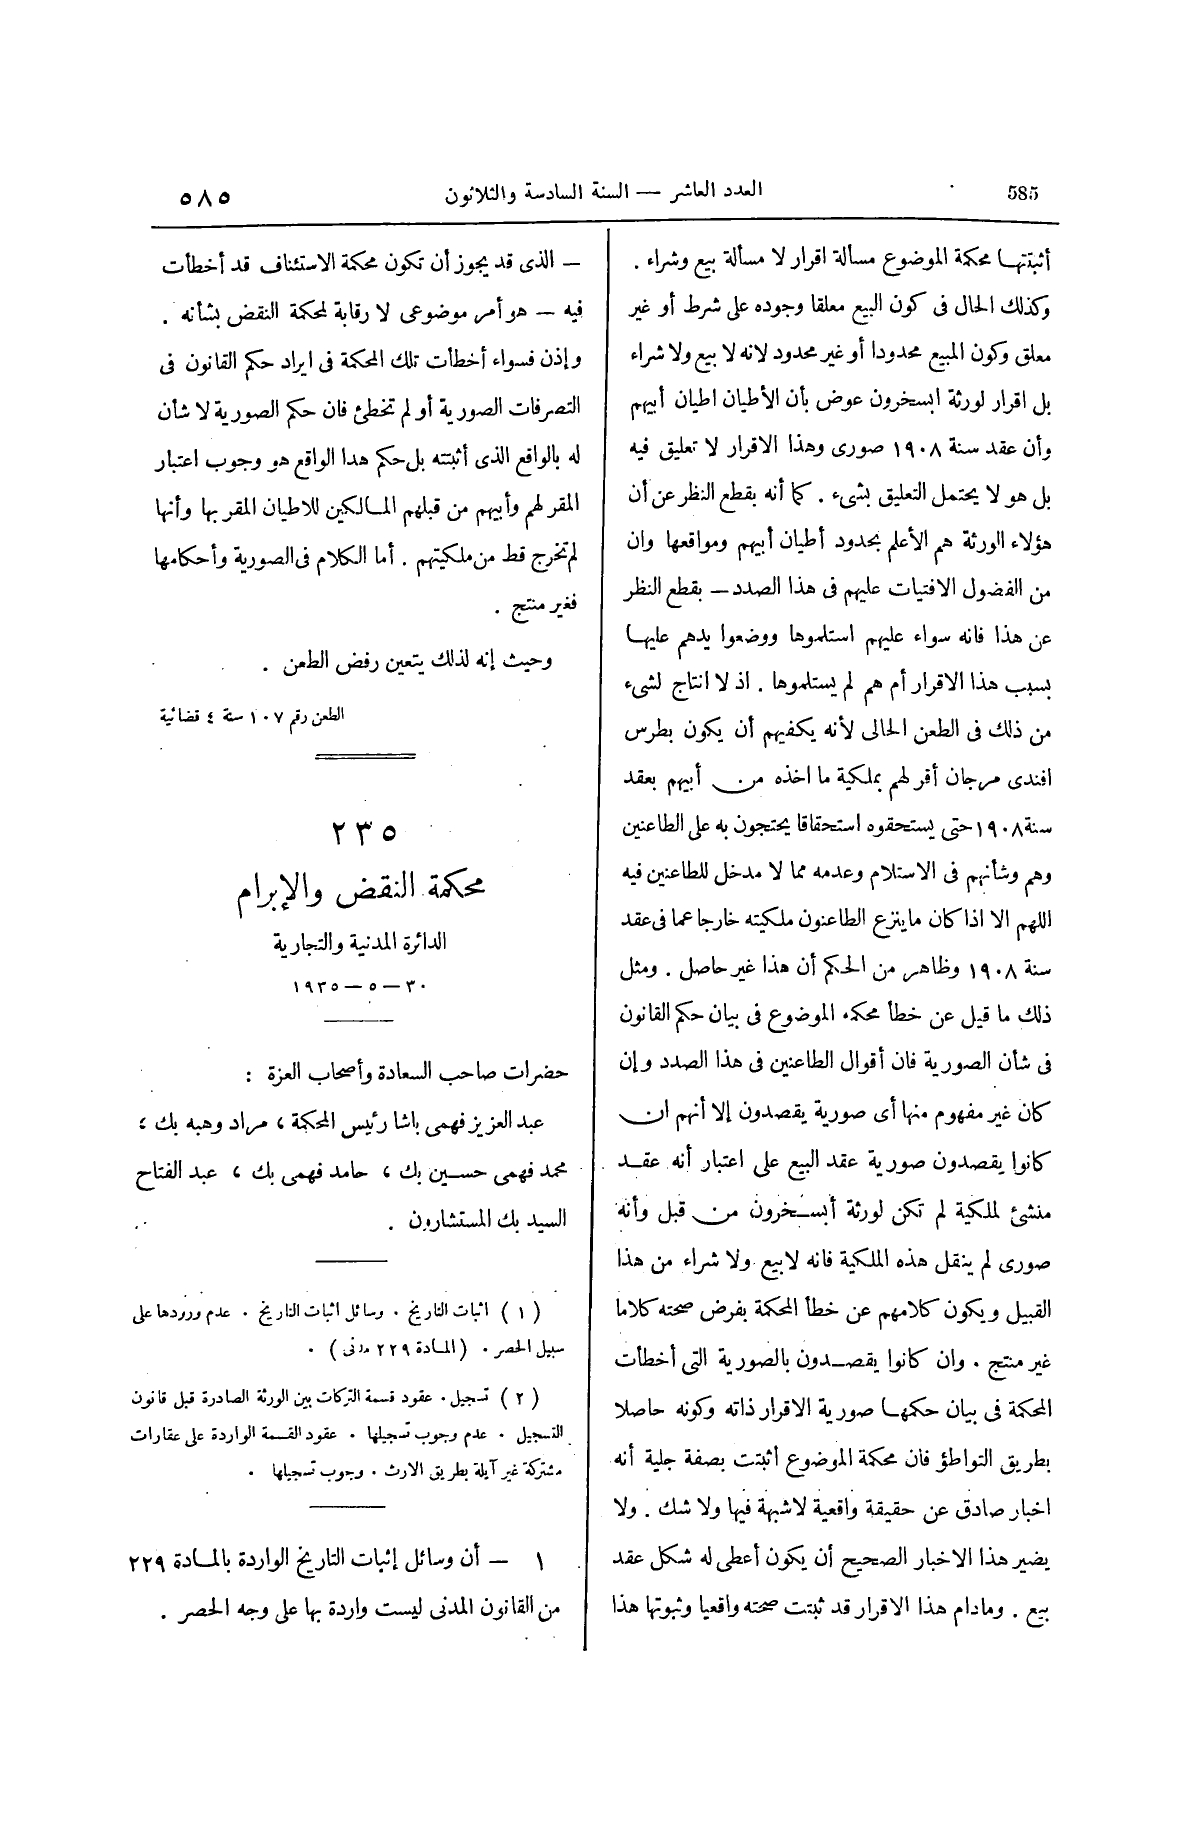 585
العدد العاشر — السنة السادسة والثلاثون
٥٨٥
أثبتتها محكمة الموضوع مسألة اقرار لا مسألة بيع وشراء .
وكذلك الحال فى كون البيع معلقا وجوده على شرط أو غير
معلق وكون المبيع محدودا أو غير محدود لانه لا بيع ولا شراء
بل اقرار لورثة ابسخرون عوض بأن الأطيان اطيان أبيهم
وأن عقد سنة ١٩٠٨ صورى وهذا الاقرار لا تعليق فيه
بل هو لا يحتمل التعليق بشىء . كما أنه بقطع النظر عن أن
هؤلاء الورثة هم الأعلم بحدود أطيان أبيهم ومواقعها وان
من الفضول الافتيات عليهم فى هذا الصدد — بقطع النظر
عن هذا فانه سواء عليهم استلموها ووضعوا يدهم عليها
بسبب هذا الاقرار أم هم لم يستلموها . اذ لا انتاج لشىء
من ذلك فى الطعن الحالى لأنه يكفيهم أن يكون بطرس
افندى مرجان أقر لهم بملكية ما اخذه من أبيهم بعقد
سنة ١٩٠٨ حتى يستحقوه استحقاقا يحتجون به على الطاعنين
وهم وشأنهم فى الاستلام وعدمه مما لا مدخل للطاعنين فيه
اللهم الا اذا كان ماينزع الطاعنون ملكيته خارجا عما فى عقد
سنة ١٩٠٨ وظاهر من الحكم أن هذا غير حاصل . ومثل
ذلك ما قيل عن خطأ محكمة الموضوع فى بيان حكم القانون
فى شأن الصورية فان أقوال الطاعنين فى هذا الصدد وإن
كان غير مفهوم منها أى صورية يقصدون إلا أنهم ان
كانوا يقصدون صورية عقد البيع على اعتبار أنه عقد
منشئ لملكية لم تكن لورثة أبسخرون من قبل وأنه
صورى لم ينقل هذه الملكية فانه لابيع ولا شراء من هذا
القبيل ويكون كلامهم عن خطأ المحكمة بفرض صحته كلاما
غير منتج . وان كانوا يقصدون بالصورية التى أخطأت
المحكمة فى بيان حكمها صورية الاقرار ذاته وكونه حاصلا
بطريق التواطؤ فان محكمة الموضوع أثبتت بصفة جلية أنه
اخبار صادق عن حقيقة واقعية لاشبهة فيها ولا شك . ولا
يضير هذا الاخبار الصحيح أن يكون أعطى له شكل عقد
بيع . ومادام هذا الاقرار قد ثبتت صحته واقعيا وثبوتها هذا
— الذى قد يجوز أن تكون محكمة الاستئناف قد أخطأت
فيه — هو أمر موضوعى لا رقابة لمحكمة النقض بشأنه .
وإذن فسواء أخطأت تلك المحكمة فى ايراد حكم القانون فى
التصرفات الصورية أو لم تخطئ فان حكم الصورية لا شأن
له بالواقع الذى أثبتته بل حكم هدا الواقع هو وجوب اعتبار
المقر لهم وأبيهم من قبلهم المالكين للاطيان المقر بها وأنها
لم تخرج قط من ملكيتهم . أما الكلام فى الصورية وأحكامها
فغير منتج .
وحيث إنه لذلك يتعين رفض الطعن .
الطعن رقم ١٠٧ سنة ٤ قضائية
٢٣٥
محكمة النقض والإبرام
الدائرة المدنية والتجارية
٣٠ — ٥ — ١٩٣٥
حضرات صاحب السعادة وأصحاب العزة :
عبد العزيز فهمى باشا رئيس المحكمة ، مراد وهبه بك ،
محمد فهمى حسين بك ، حامد فهمى بك ، عبد الفتاح
السيد بك المستشارون .
( ١ ) اثبات التاريخ . وسائل اثبات التاريخ . عدم ورودها على
سبيل الحصر . ( المادة ٢٢٩ مدنى ) .
( ٢ ) تسجيل . عقود قسمة التركات بين الورثة الصادرة قبل قانون
التسجيل . عدم وجوب تسجيلها . عقود القسمة الواردة على عقارات
مشتركة غير آيلة بطريق الارث . وجوب تسجيلها .
١ — أن وسائل إثبات التاريخ الواردة بالمادة ٢٢٩
من القانون المدنى ليست واردة بها على وجه الحصر .